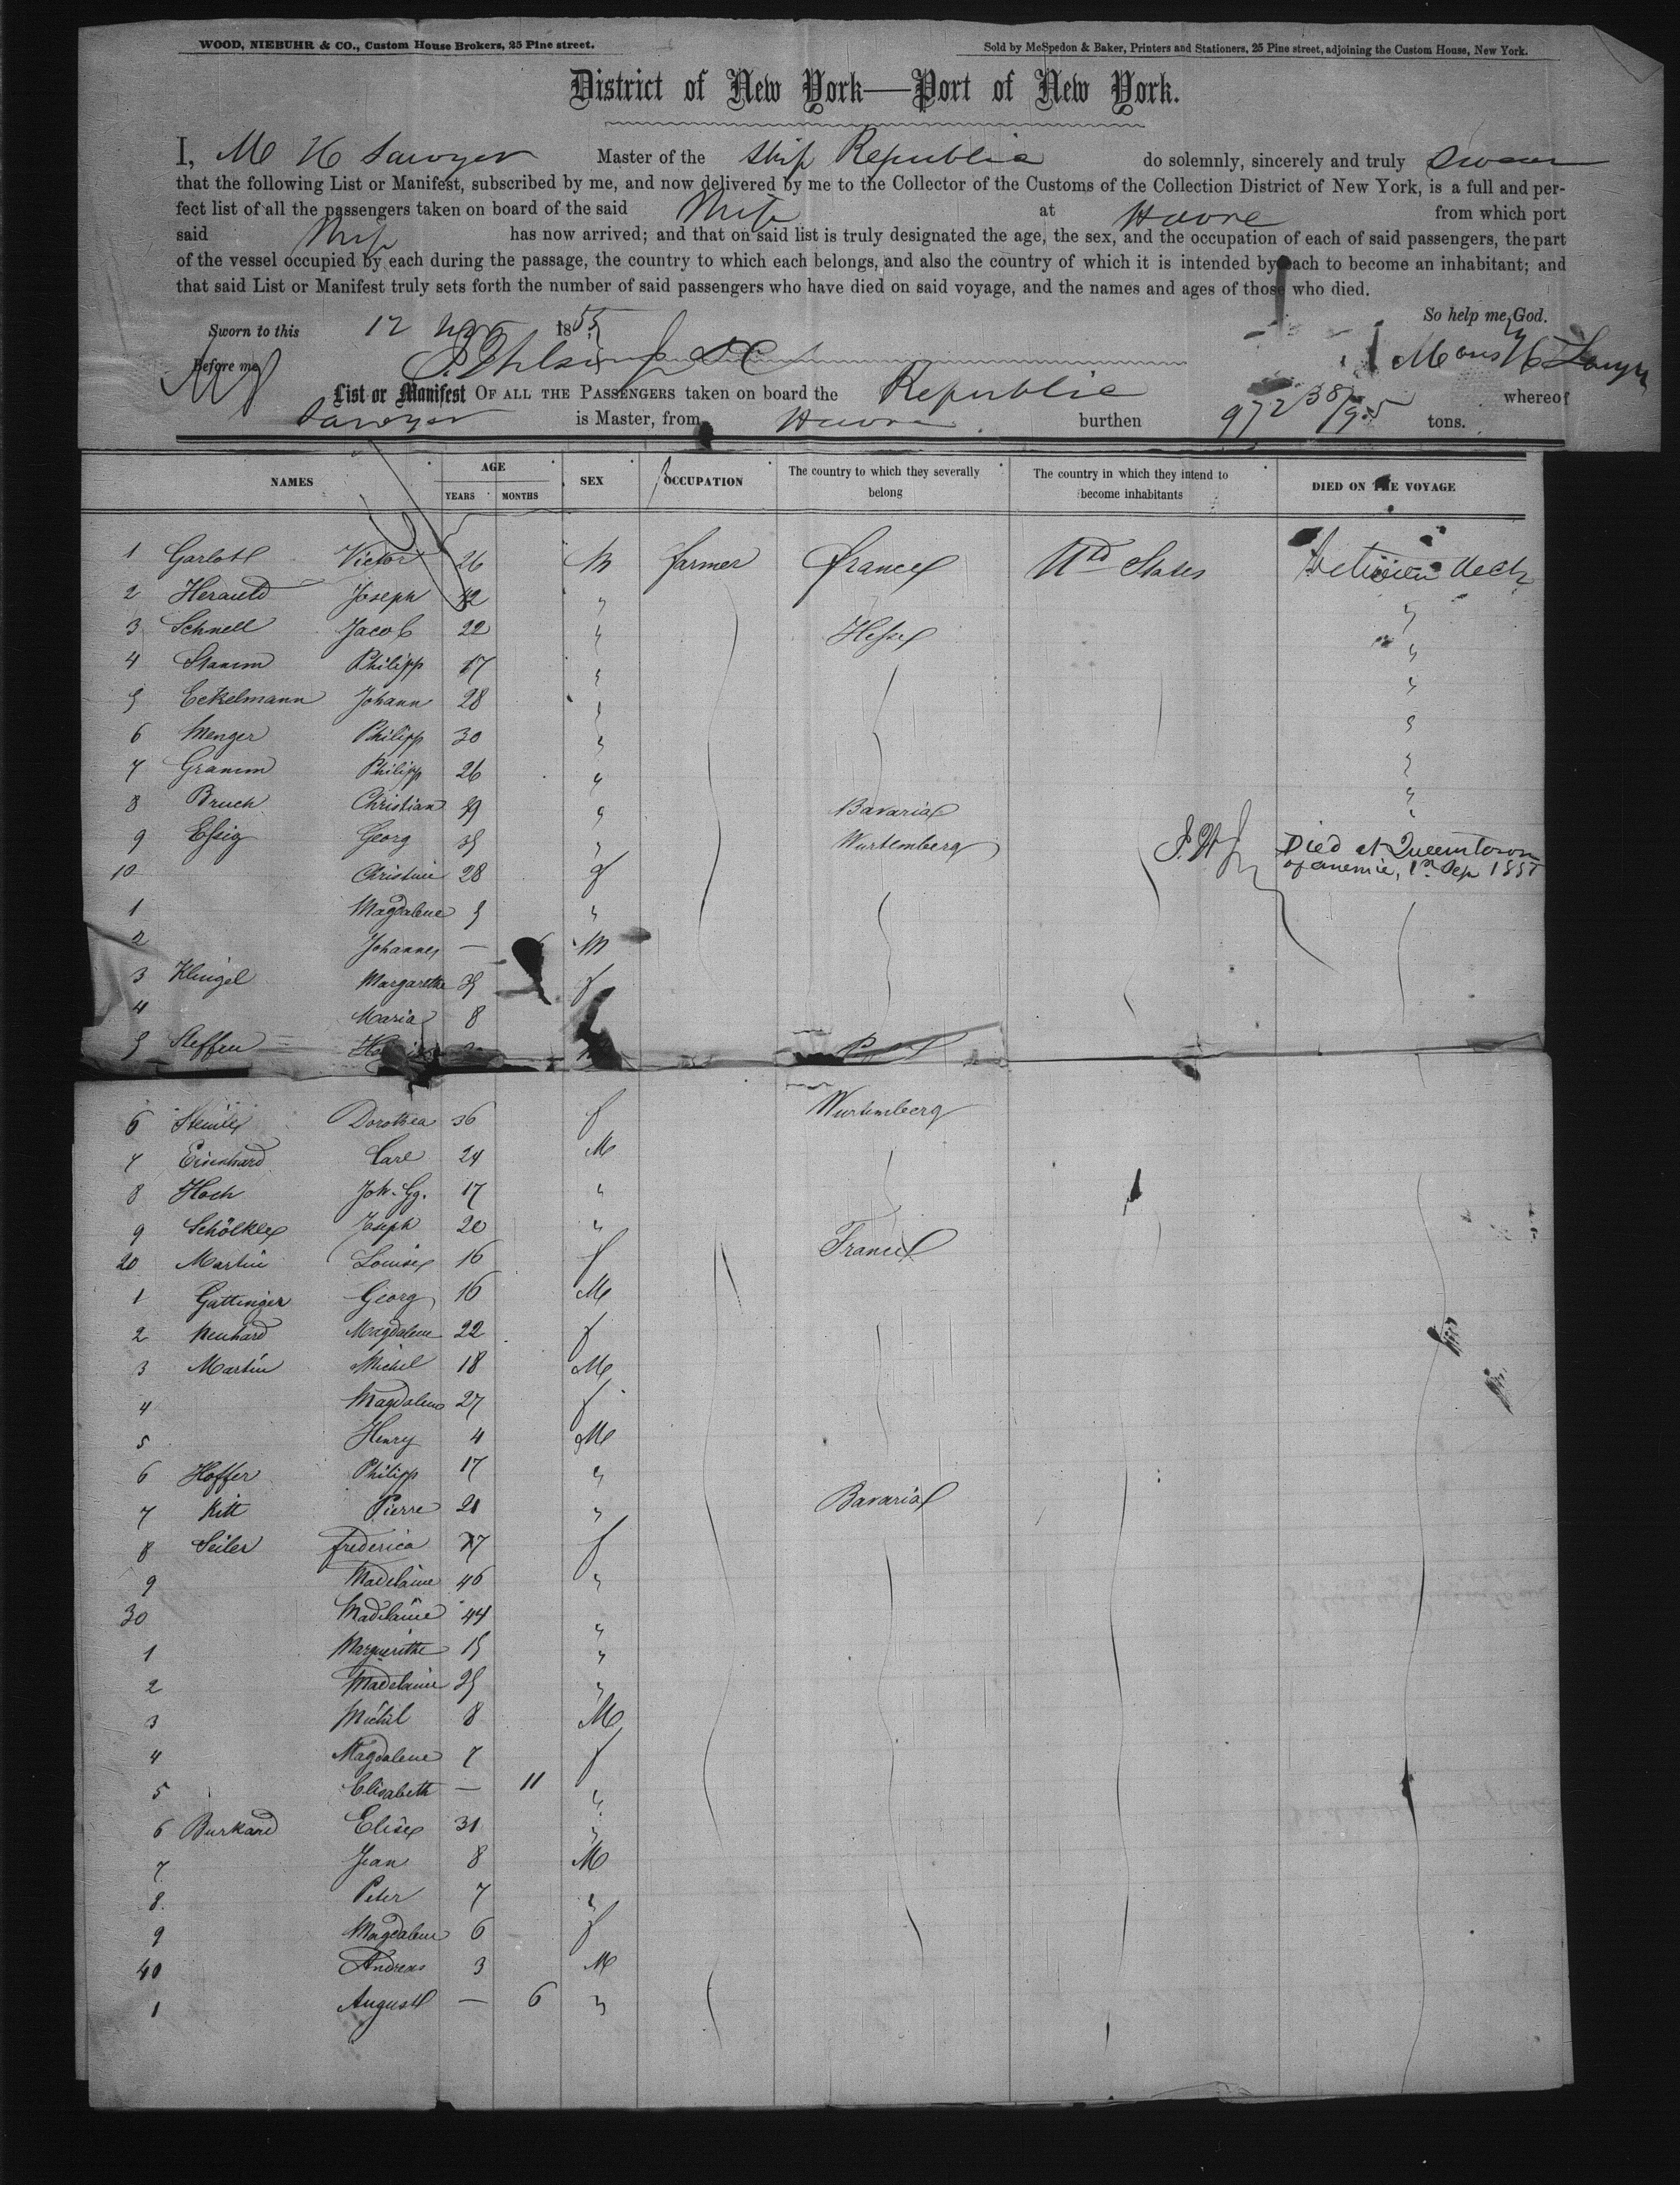 WOOD, NIEBUHR & CO., Custom House Brokers, 25 Pine street.
Sold by McSpedon & Baker, Printers and Stationers, 25 Pine street, adjoining the Custom House, New York.
District of New York—Port of New York.
I, M H Sawyer Master of the Ship Republic do solemnly, sincerely and truly swear
that the following List or Manifest, subscribed by me, and now delivered by me to the Collector of the Customs of the Collection District of New York, is a full and per-
fect list of all the passengers taken on board of the said Ship at Havre from which port
said Ship has now arrived; and that on said list is truly designated the age, the sex, and the occupation of each of said passengers, the part
of the vessel occupied by each during the passage, the country to which each belongs, and also the country of which it is intended by each to become an inhabitant; and
that said List or Manifest truly sets forth the number of said passengers who have died on said voyage, and the names and ages of those who died.
So help me God.
Sworn to this 12 Nov 1855
Before me
List or Manifest OF ALL THE PASSENGERS taken on board the Republic whereof
Sawyer is Master, from Havre burthen 972 38/95 tons.
NAMES AGE YEARS MONTHS SEX OCCUPATION The country to which they severally belong The country in which they intend to become inhabitants DIED ON THE VOYAGE
1 Victor 26 M farmer France Utd States between deck
2 Herauld Joseph 42 "
3 Schnell Jacob 22 " Hesse "
4 Stamm Philipp 17 " "
5 Eckelmann Johann 28 " "
6 Menger Philipp 30 " "
7 Gramm Philipp 26 " "
8 Bruch Christian 29 " Bavaria "
9 Essig Georg 35 " Wurtemberg Died at Queenstown
of anemie, 1st Sep 1855
10 Christine 28 f
1 Magdalene 5 "
2 Johannes — M
3 Klingel Margarethe 35 f
4 Maria 8
5 Steffen
6 Dorothea 36 f Wurtemberg
7 Carl 24 M
8 Hoch Joh. Gg. 17 "
9 Joseph 20 "
20 Martin Louise 16 f France
1 Gattinger Georg 16 M
2 Magdalene 22 f
3 Martin Michel 18 M
4 Magdalena 27 f
5 Henry 4 M
6 Hoffer Philipp 17 "
7 Kitt Pierre 21 " Bavaria
8 Seiler Frederica f
9 Madelaine 46 "
30 Madelaine 44 "
1 Marguerithe 15 "
2 Madelaine 25 "
3 Michel 8 M
4 Magdalene 7 f
5 Elisabeth — 11 "
6 Burkard Elise 31 "
7 Jean 8 M
8 Peter 7 "
9 Magdalene 6 f
40 Andreas 3 M
1 August — 6 "